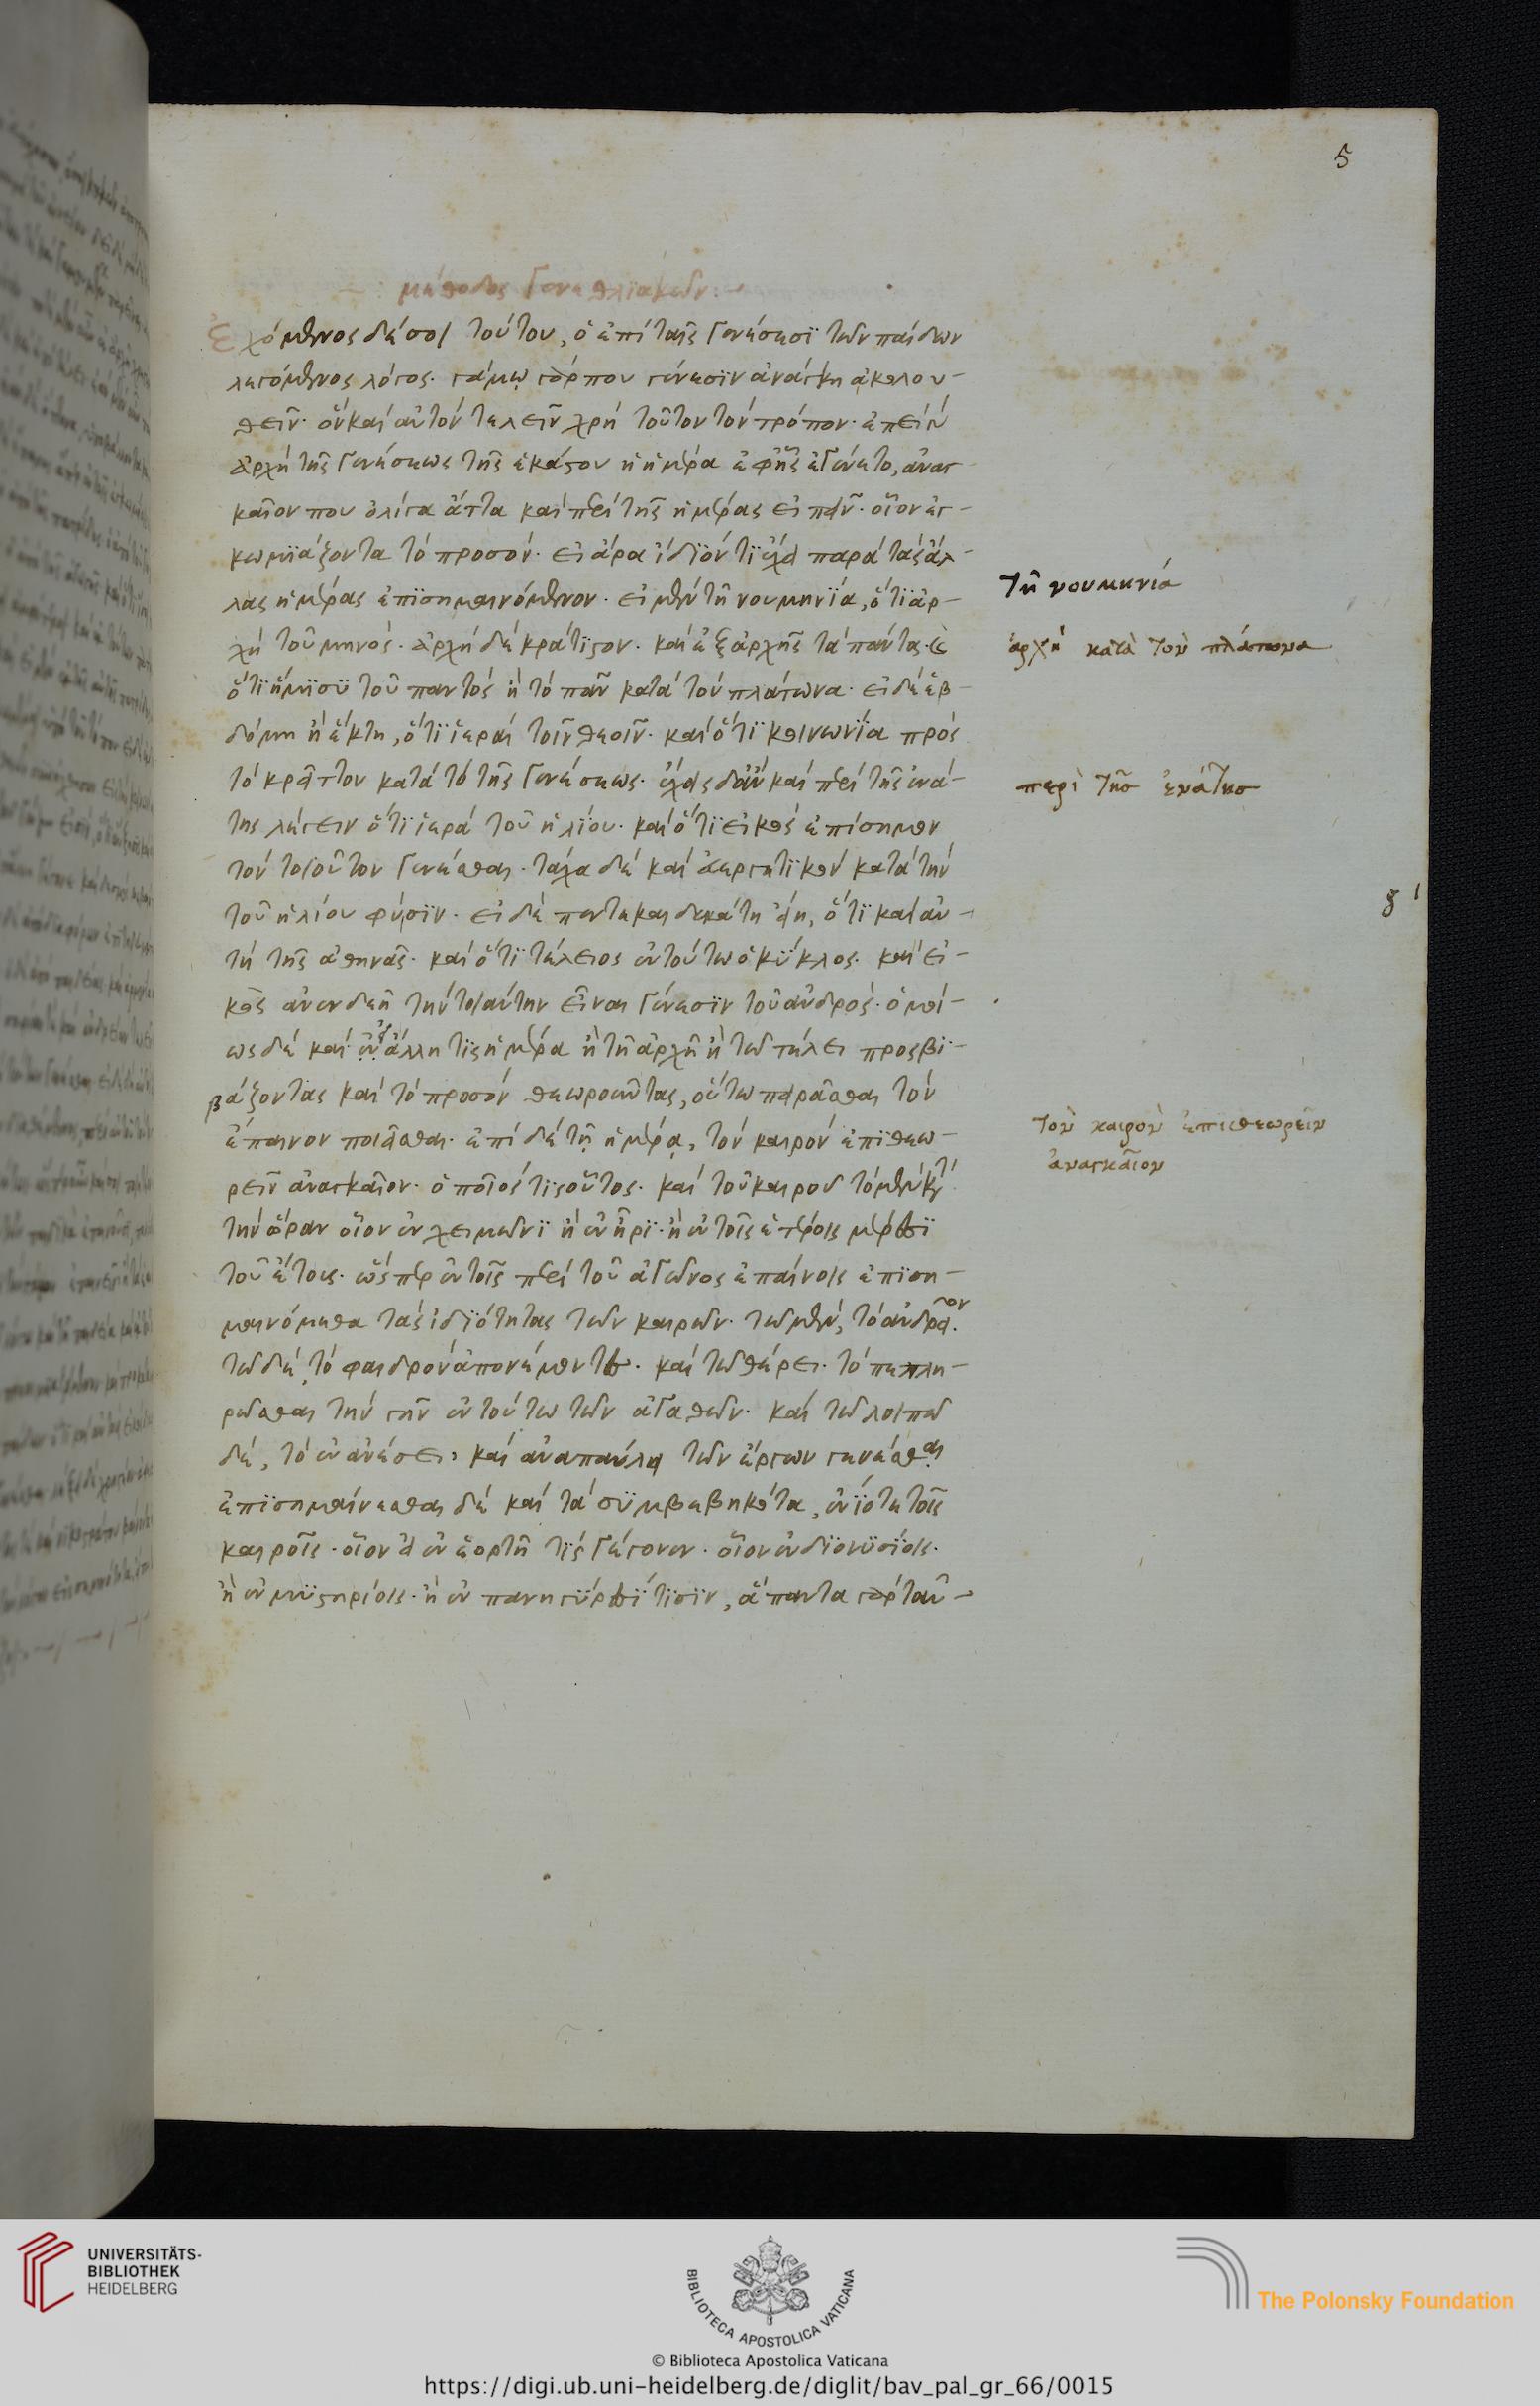 5
μέθοδος γενεθλιακῶν:
Ἐχόμενος δέ σοι τούτου, ὁ ἐπὶ ταῖς γενέσεσϊ τῶν παίδων
λεγόμενος λόγος. γάμω γάρ που γένεσϊν ἀνάγκη ἀκολου-
θεῖν. ὃν καὶ αὐτὸν τελεῖν χρὴ τοῦτον τὸν τρόπον. ἐπεὶ
ἀρχὴ τῆς γενέσεως τῆς ἑκάστου ἡ ἡμέρα ἐφ' ἧς ἐγένετο, ἀναγ-
καῖον που ὀλίγα ἄττα καὶ περὶ τῆς ἡμέρας εἰπεῖν. οἷον ἐγ-
κωμϊάζοντα τὸ προσόν. εἰ ἄρα ἰδϊόν τϊ ἔχει παρὰ τὰς ἄλ-
λας ἡμέρας ἐπϊσημαινόμενον. εἰ μὲν τῆ νουμηνϊα, ὅτϊ ἀρ-
χὴ τοῦ μηνός. ἀρχὴ δὲ κράτϊστον. καὶ ἐξ ἀρχῆς τὰ πάντα. καὶ
ὅτϊ ἥμϊσϋ τοῦ παντός ἢ τὸ πᾶν κατὰ τὸν πλάτωνα. εἰ δὲ ἑβ-
δόμη ἢ ἕκτη, ὅτϊ ἱεραὶ τοῖν θεοῖν. καὶ ὅτϊ κοινωνία πρὸς
τὸ κρεῖττον κατὰ τὸ τῆς γενέσεως. ἔχεις δ' ἂν καὶ περὶ τῆς ἐνά-
της λέγειν ὅτϊ ἱερὰ τοῦ ἡλίου. καὶ ὅτϊ εἰκὸς ἐπίσημον
τὸν τοιοῦτον γενέσθαι. τάχα δὲ καὶ ἀεργετϊκὸν κατὰ τὴν
τοῦ ἡλίου φύσϊν. εἰ δὲ πεντεκαιδεκάτη εἴη, ὅτϊ καὶ αὐ-
τὴ τῆς ἀθηνᾶς. καὶ ὅτϊ τέλειος ἐν τούτω ὁ κϋκλος. καὶ εἰ-
κὸς ἀνενδεῆ τὴν τοιαύτην εἶναι γένεσϊν τοῦ ἀνδρός. ὁμοί-
ως δὲ καὶ ἂν ἄλλη τϊς ἡμέρα ἢ τῆ ἀρχῆ ἢ τῶ τέλει προσβϊ-
βάζοντας καὶ τὸ προσὸν θεωροῦντας, οὕτω πειρᾶσθαι τὸν
ἔπαινον ποιεῖσθαι. ἐπὶ δὲ τῆ ἡμέρᾳ, τὸν καιρὸν ἐπϊθεω-
ρεῖν ἀναγκαῖον. ὁποῖός τϊς οὗτος. καὶ τοῦ καιροῦ τὸ μὲν κατὰ
τὴν ὥραν οἷον ἐν χειμῶνϊ ἢ ἐν ἦρϊ. ἢ ἐν τοῖς ἑτέροις μέρεσϊ
τοῦ ἔτους. ὥσπερ ἐν τοῖς περὶ τοῦ ἀγῶνος ἐπαίνοις ἐπϊση-
μαινόμεθα τὰς ἰδϊότητας τῶν καιρῶν. τῶ μὲν, τὸ ἀνδρεῖον.
τῶ δὲ, τὸ φαιδρὸν ἀπονέμοντες. καὶ τῶ θέρει. τὸ πεπλη-
ρῶσθαι τὴν γῆν ἐν τούτω τῶν ἀγαθῶν. καὶ τῶ λοιπῶ
δὲ, τὸ ἐν ἀνέσει καὶ ἀναπαύλῃ τῶν ἔργων γενέσθαι
ἐπϊσημαίνεσθαι δὲ καὶ τὰ σϋμβεβηκότα, ἐνϊότε τοῖς
καιροῖς. οἷον εἰ ἐν ἑορτῆ τϊς γέγονεν. οἷον ἐν δϊονϋσίοις.
ἢ ἐν μϋστηρίοις. ἢ ἐν πανηγϋρεσϊ τϊσϊν, ἅπαντα γὰρ ταῦ-
τῆ νουμηνία
ἀρχὴ κατὰ τὸν πλάτωνα
περὶ τῆσ ἐνάτησ
τὸν καιρὸν ἐπιθεωρεῖν
ἀναγκαῖον
UNIVERSITÄTS-
BIBLIOTHEK
HEIDELBERG
BIBLIOTECA APOSTOLICA VATICANA
The Polonsky Foundation
© Biblioteca Apostolica Vaticana
https://digi.ub.uni-heidelberg.de/diglit/bav_pal_gr_66/0015